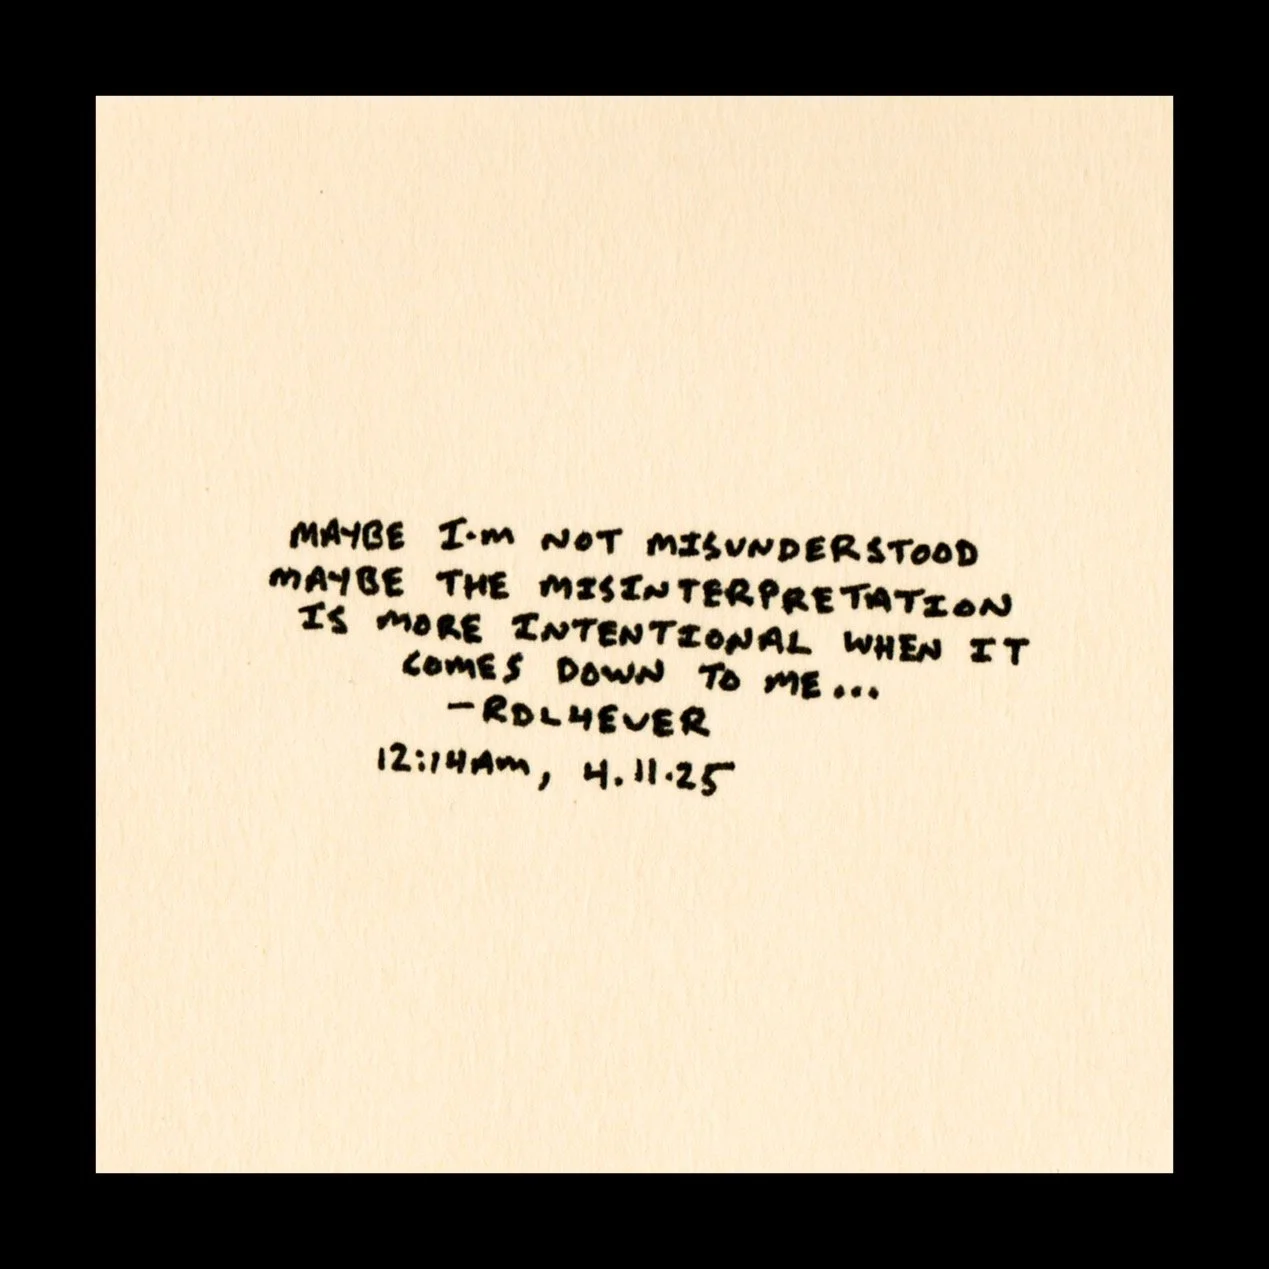 MAYBE I·M NOT MISUNDERSTOOD
MAYBE THE MISINTERPRETATION
IS MORE INTENTIONAL WHEN IT
COMES DOWN TO ME...
-RDL4EVER
12:14AM, 4.11.25